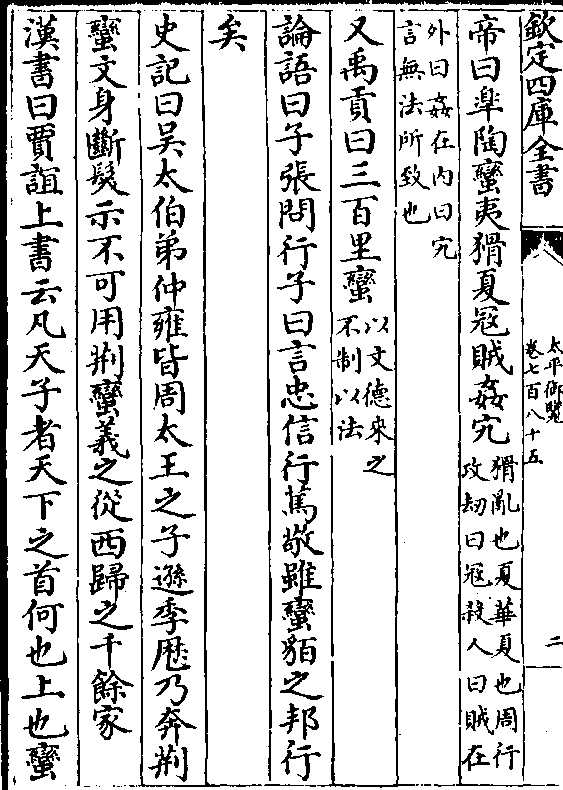 欽定四庫全書
太平御覽
卷七百八十五
二
帝曰臯陶蠻夷猾夏冦賊姦宄猾亂也夏華夏也周行攻劫曰冦殺人曰賊在
外曰姦在内曰宄言無法所致也
又禹貢曰三百里蠻以文德來之不制以法
論語曰子張問行子曰言忠信行篤敬雖蠻貊之邦行
矣
史記曰吳太伯弟仲雍皆周太王之子遜季厯乃奔荆
蠻文身斷髮示不可用荆蠻義之從西歸之千餘家
漢書曰賈誼上書云凡天子者天下之首何也上也蠻